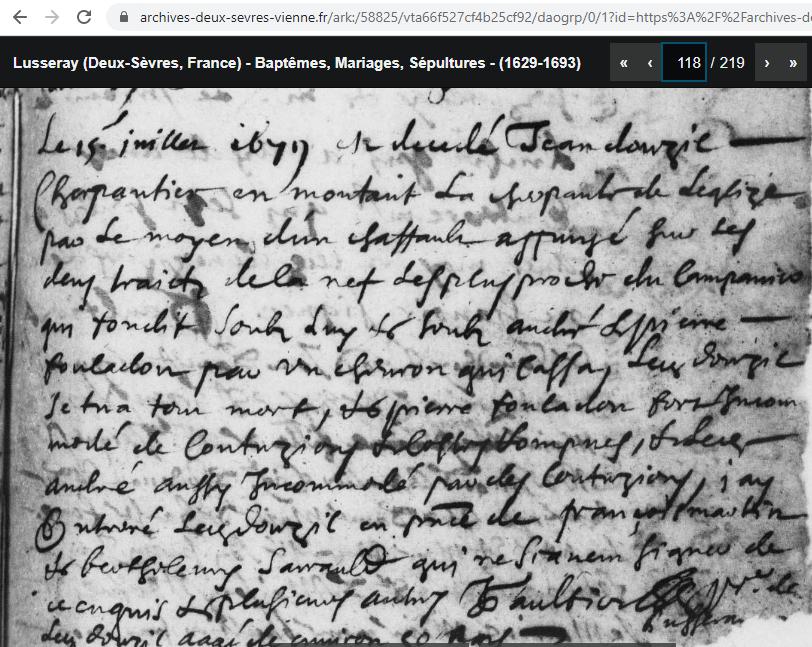 archives-deux-sevres-vienne.fr/ark:/58825/vta66f527cf4b25cf92/daogrp/0/1?id=https%3A%2F%2Farchives-d
Lusseray (Deux-Sèvres, France) - Baptêmes, Mariages, Sépultures - (1629-1693)
« ‹ 118 / 219 › »
Le 15e juillet 1679 est decedé Jean douzil
Cherpantier en montant la de Leglize
par le moyen d'un chaffault appuyé sur les
deux traictz de la nef les plus proche du Campanier
qui fondit soubz luy et soubz andré et pierre
fouladon par un chevron qui cassa, Led douzil
se tua tout mort, et pierre fouladon fort Incom
modé de Contuzions et led
andré aussy Incommodé par des Contuzions, j'ay
Enterré Led douzil en pnce de françois martin
et berthelemy qui ne scavent signer de
ce enquis et plusieurs autres
Led douzil aagé de environ 50 ans